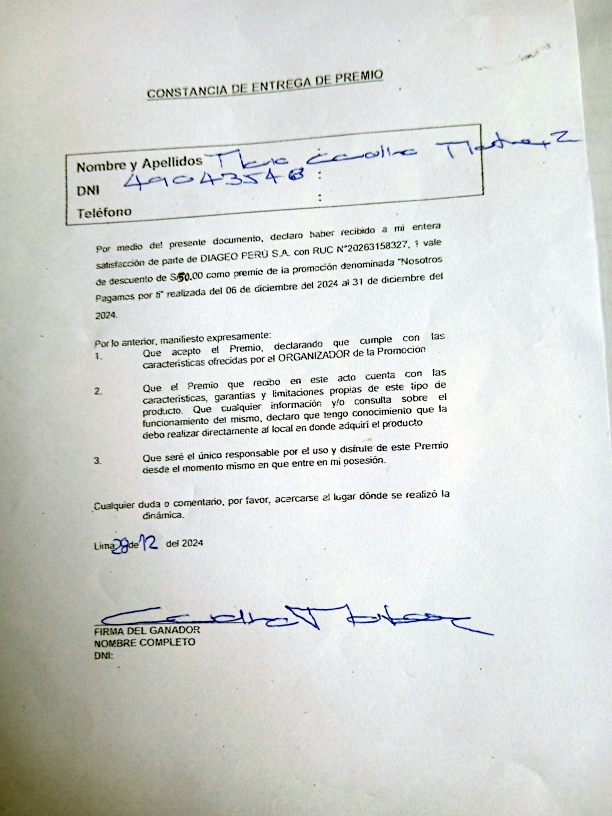 CONSTANCIA DE ENTREGA DE PREMIO
Nombre y Apellidos : Maria Carolina Martinez
DNI 49043546 :
Teléfono :
Por medio del presente documento, declaro haber recibido a mi entera
satisfacción de parte de DIAGEO PERÚ S.A. con RUC N°20263158327, 1 vale
de descuento de S/50.00 como premio de la promoción denominada "Nosotros
Pagamos por ti" realizada del 06 de diciembre del 2024 al 31 de diciembre del
2024.
Por lo anterior, manifiesto expresamente:
1. Que acepto el Premio, declarando que cumple con las
características ofrecidas por el ORGANIZADOR de la Promoción
2. Que el Premio que recibo en este acto cuenta con las
características, garantías y limitaciones propias de este tipo de
producto. Que cualquier información y/o consulta sobre el
funcionamiento del mismo, declaro que tengo conocimiento que la
debo realizar directamente al local en donde adquirí el producto
3. Que seré el único responsable por el uso y disfrute de este Premio
desde el momento mismo en que entre en mi posesión.
Cualquier duda o comentario, por favor, acercarse al lugar dónde se realizó la
dinámica.
Lima 28 de 12 del 2024
FIRMA DEL GANADOR
NOMBRE COMPLETO
DNI: